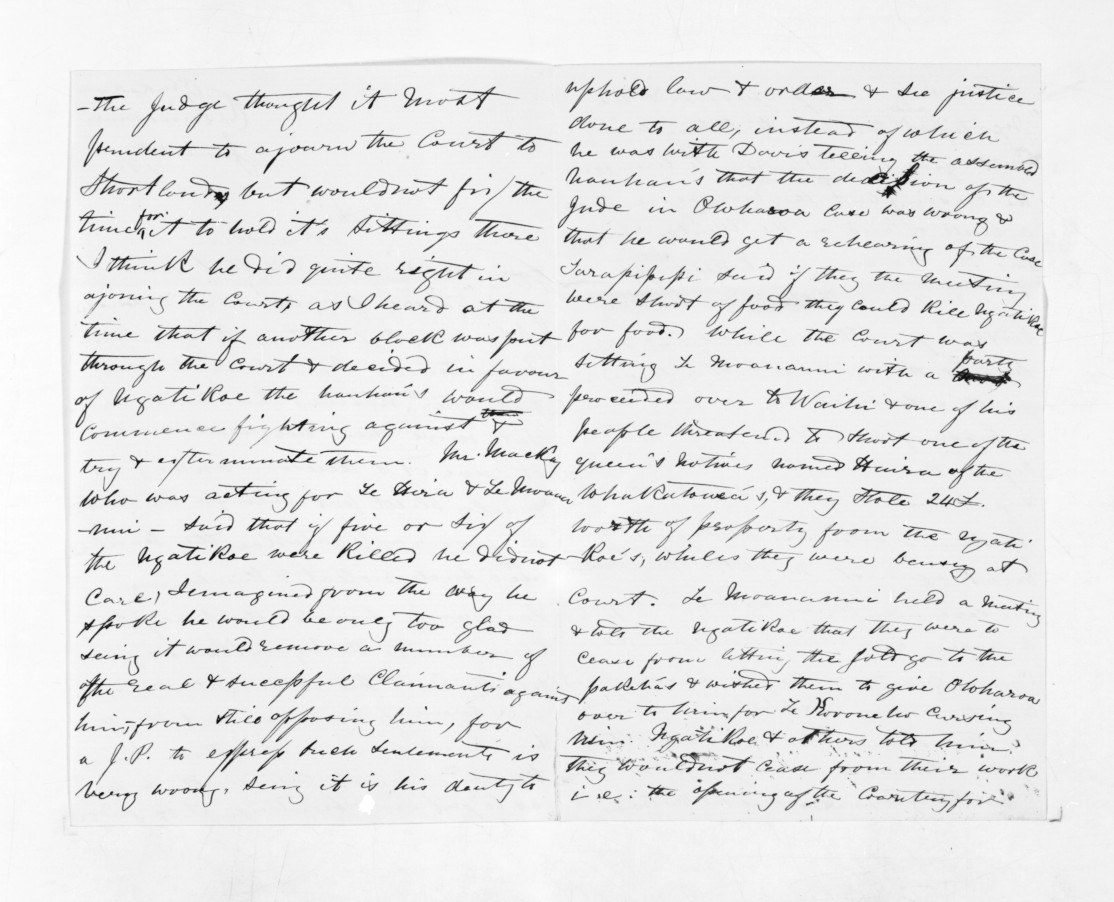 - The Judge thought it most
prudent to ajourn the Court to
Shortland, but would not fix the
time for it to hold it's sittings there
I think he did quite right in
ajoning the Court, as I heard at the
time that if another block was put
through the Court & decided in favour
of NgatiKoe the hauhau's would
commence fighting against &
try & exterminate them. Mr. Mackay
who was acting for Te Hira & Te Moana
-nui - said that if five or six of
the NgatiKoe were Killed he did not
Care, I emagined from the way he
spoke he would be only too glad
seing it would remove a number of
the real & sucessful Claimants against
him, from still opposing him, for
a J.P. to express such sentements is
very wrong, seing it is his deuty to
uphold law & order & see justice
done to all, instead of which
he was with Davis telling the assembled
hauhau's that the decision of the
Jude in Owharoa Case was wrong &
that he would get a rehearing of the Case
Tarapipipi said if they the meeting
were short of food they could Kill NgatiKoe
for food. While the Court was
sitting Te Moananui with a party
proceeded over to Waihi & one of his
people threatened to shoot one of the
queen's natives named Haira of the
Whakatowea's, & they Stole 24£.
worth of property from the Ngati
Koe's, whiles they were beusey at
Court. Te Moananui held a meeting
& told the NgatiKoe that they were to
cease from letting the gold go to the
pakeha's & wished them to give Owharoa
over to him, for Te cursing
him. NgatiKoe & others told him
they would not cease from their work
i.e: the opening of the Country for